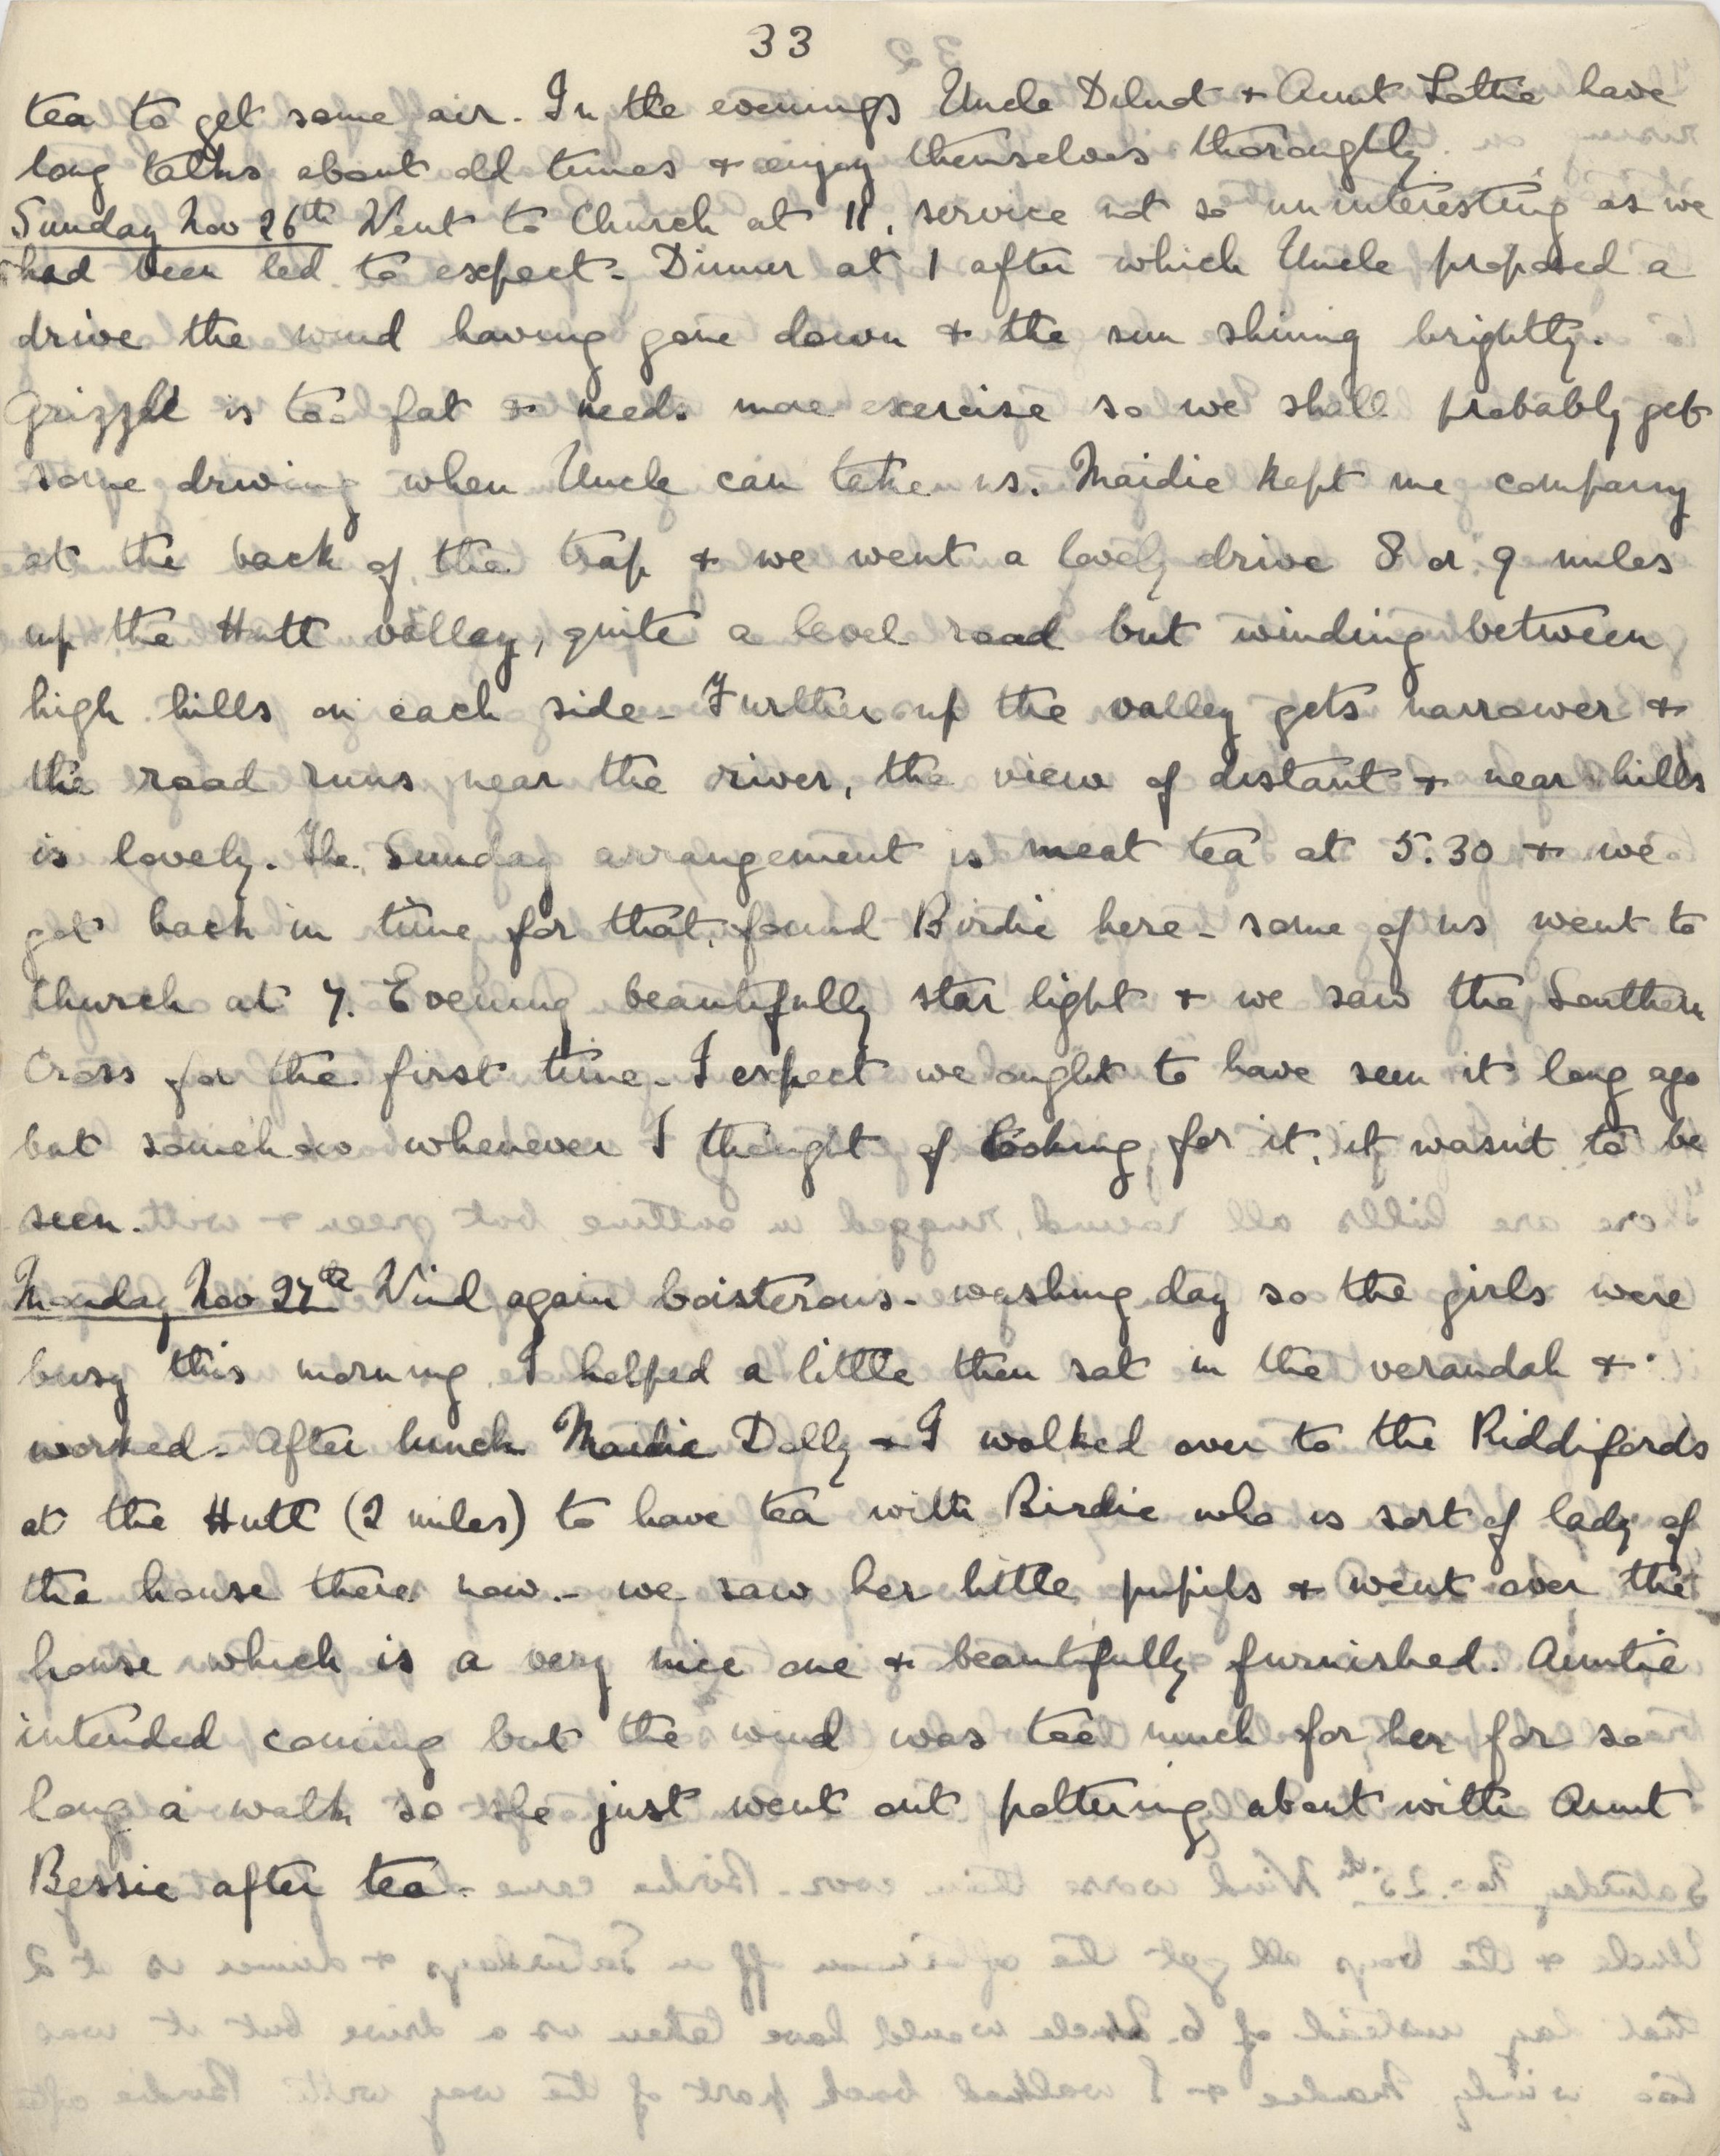 33
tea to get some air. In the evenings Uncle & Aunt Lottie have
long talks about old times & enjoy themselves thoroughly.
Sunday Nov 26th Went to Church at 11, service not so uninteresting as we
had been led to expect - Dinner at 1 after which Uncle proposed a
drive the wind having gone down & the sun shining brightly.
Grizzle is too fat & needs more exercise so we shall probably get
some driving when Uncle can take us. Maidie kept me company
at the back of the trap & we went a lovely drive 8 or 9 miles
up the Hutt valley, quite a level road but winding between
high hills on each side - Further up the valley gets narrower &
the road runs near the river, the view of distant & near hills
is lovely. The Sunday arrangement is meat tea at 5.30 & we
got back in time for that, found Birdie here - some of us went to
Church at 7. Evening beautifully star light & we saw the Southern
Cross for the first time - I expect we ought to have seen it long ago
but somehow whenever I thought of looking for it, it wasn't to be
seen.
Monday Nov 27th Wind again boisterous - washing day so the girls were
busy this morning. I helped a little then sat in the verandah &
worked - After lunch Maidie Dolly & I walked over to the Riddifords
at the Hutt (2 miles) to have tea with Birdie who is sort of lady of
the house there now. - we saw her little pupils & went over the
house which is a very nice one & beautifully furnished. Auntie
intended coming but the wind was too much for her for so
long a walk so she just went out pottering about with Aunt
Bessie after tea -